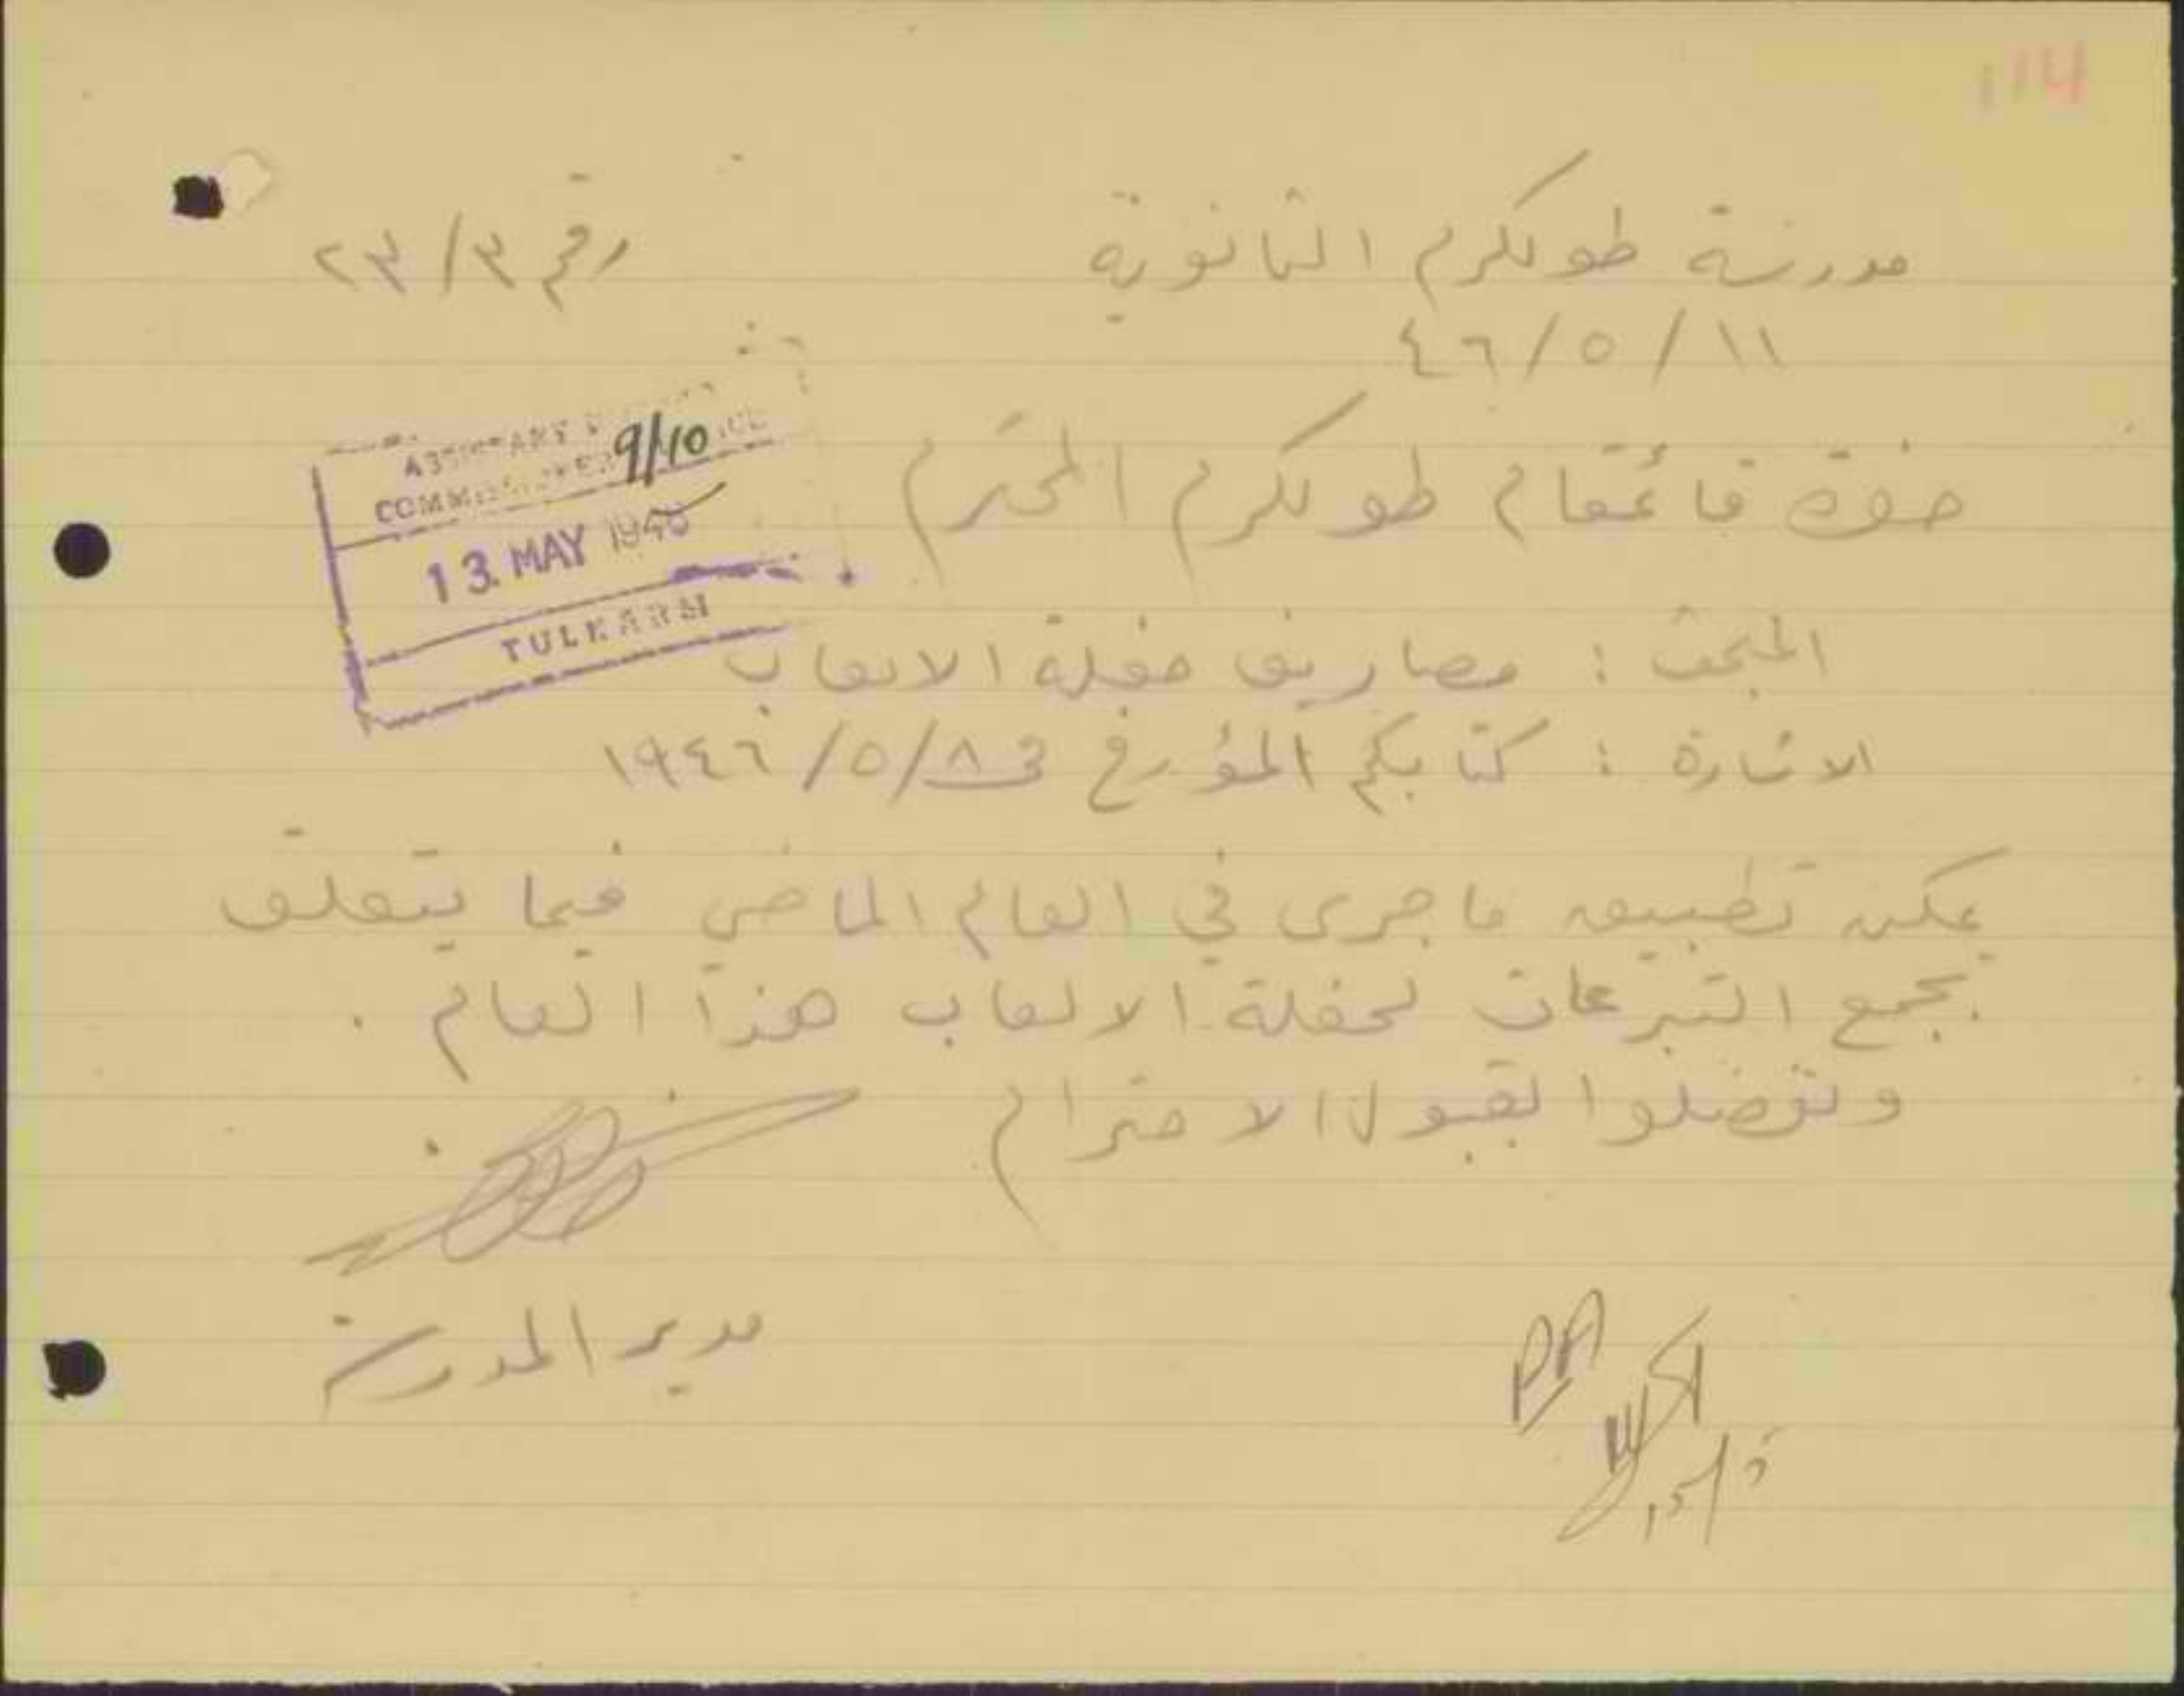 114
مدرسة طولكرم الثانوية
رقم ٣/٢٣
١١/٥/٤٦
ASSISTANT DISTRICT
COMMISSIONER'S OFFICE
9/10
13. MAY 1946
TULKARM
حضرة قائمقام طولكرم المحترم
المبحث : مصاريف حفلة الالعاب
الاشارة : كتابكم المؤرخ في ٨/٥/١٩٤٦
يمكن تطبيق ما جرى في العام الماضي فيما يتعلق
بجمع التبرعات لحفلة الالعاب هذا العام .
وتفضلوا بقبول الاحترام
مدير المدرسة
PA